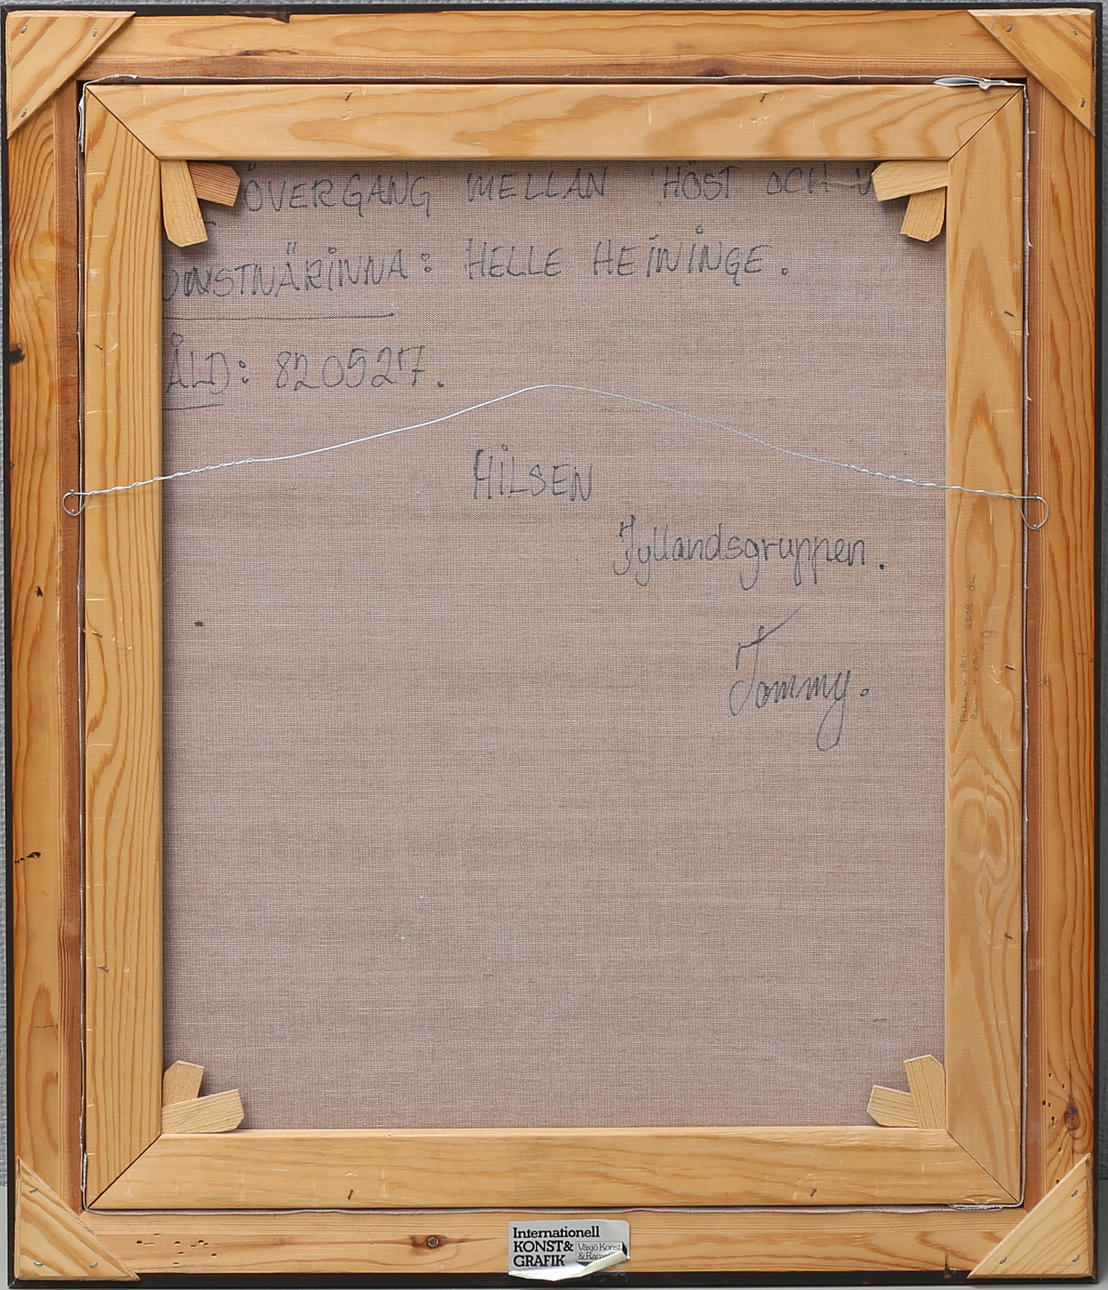 ÖVERGANG MELLAN HÖST OCH V
ONSTNÄRINNA: HELLE HEININGE.
ÅLD: 820527.
HILSEN
Jyllandsgruppen.
Tommy.
Internationell
KONST&
GRAFIK
Växjö Konst
& Ram